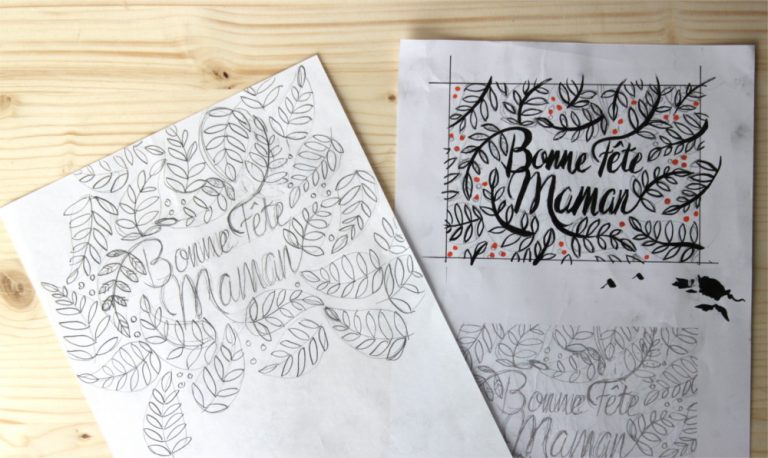 Bonne Fête
Maman
Bonne Fête
Maman
Bonne Fête
Maman